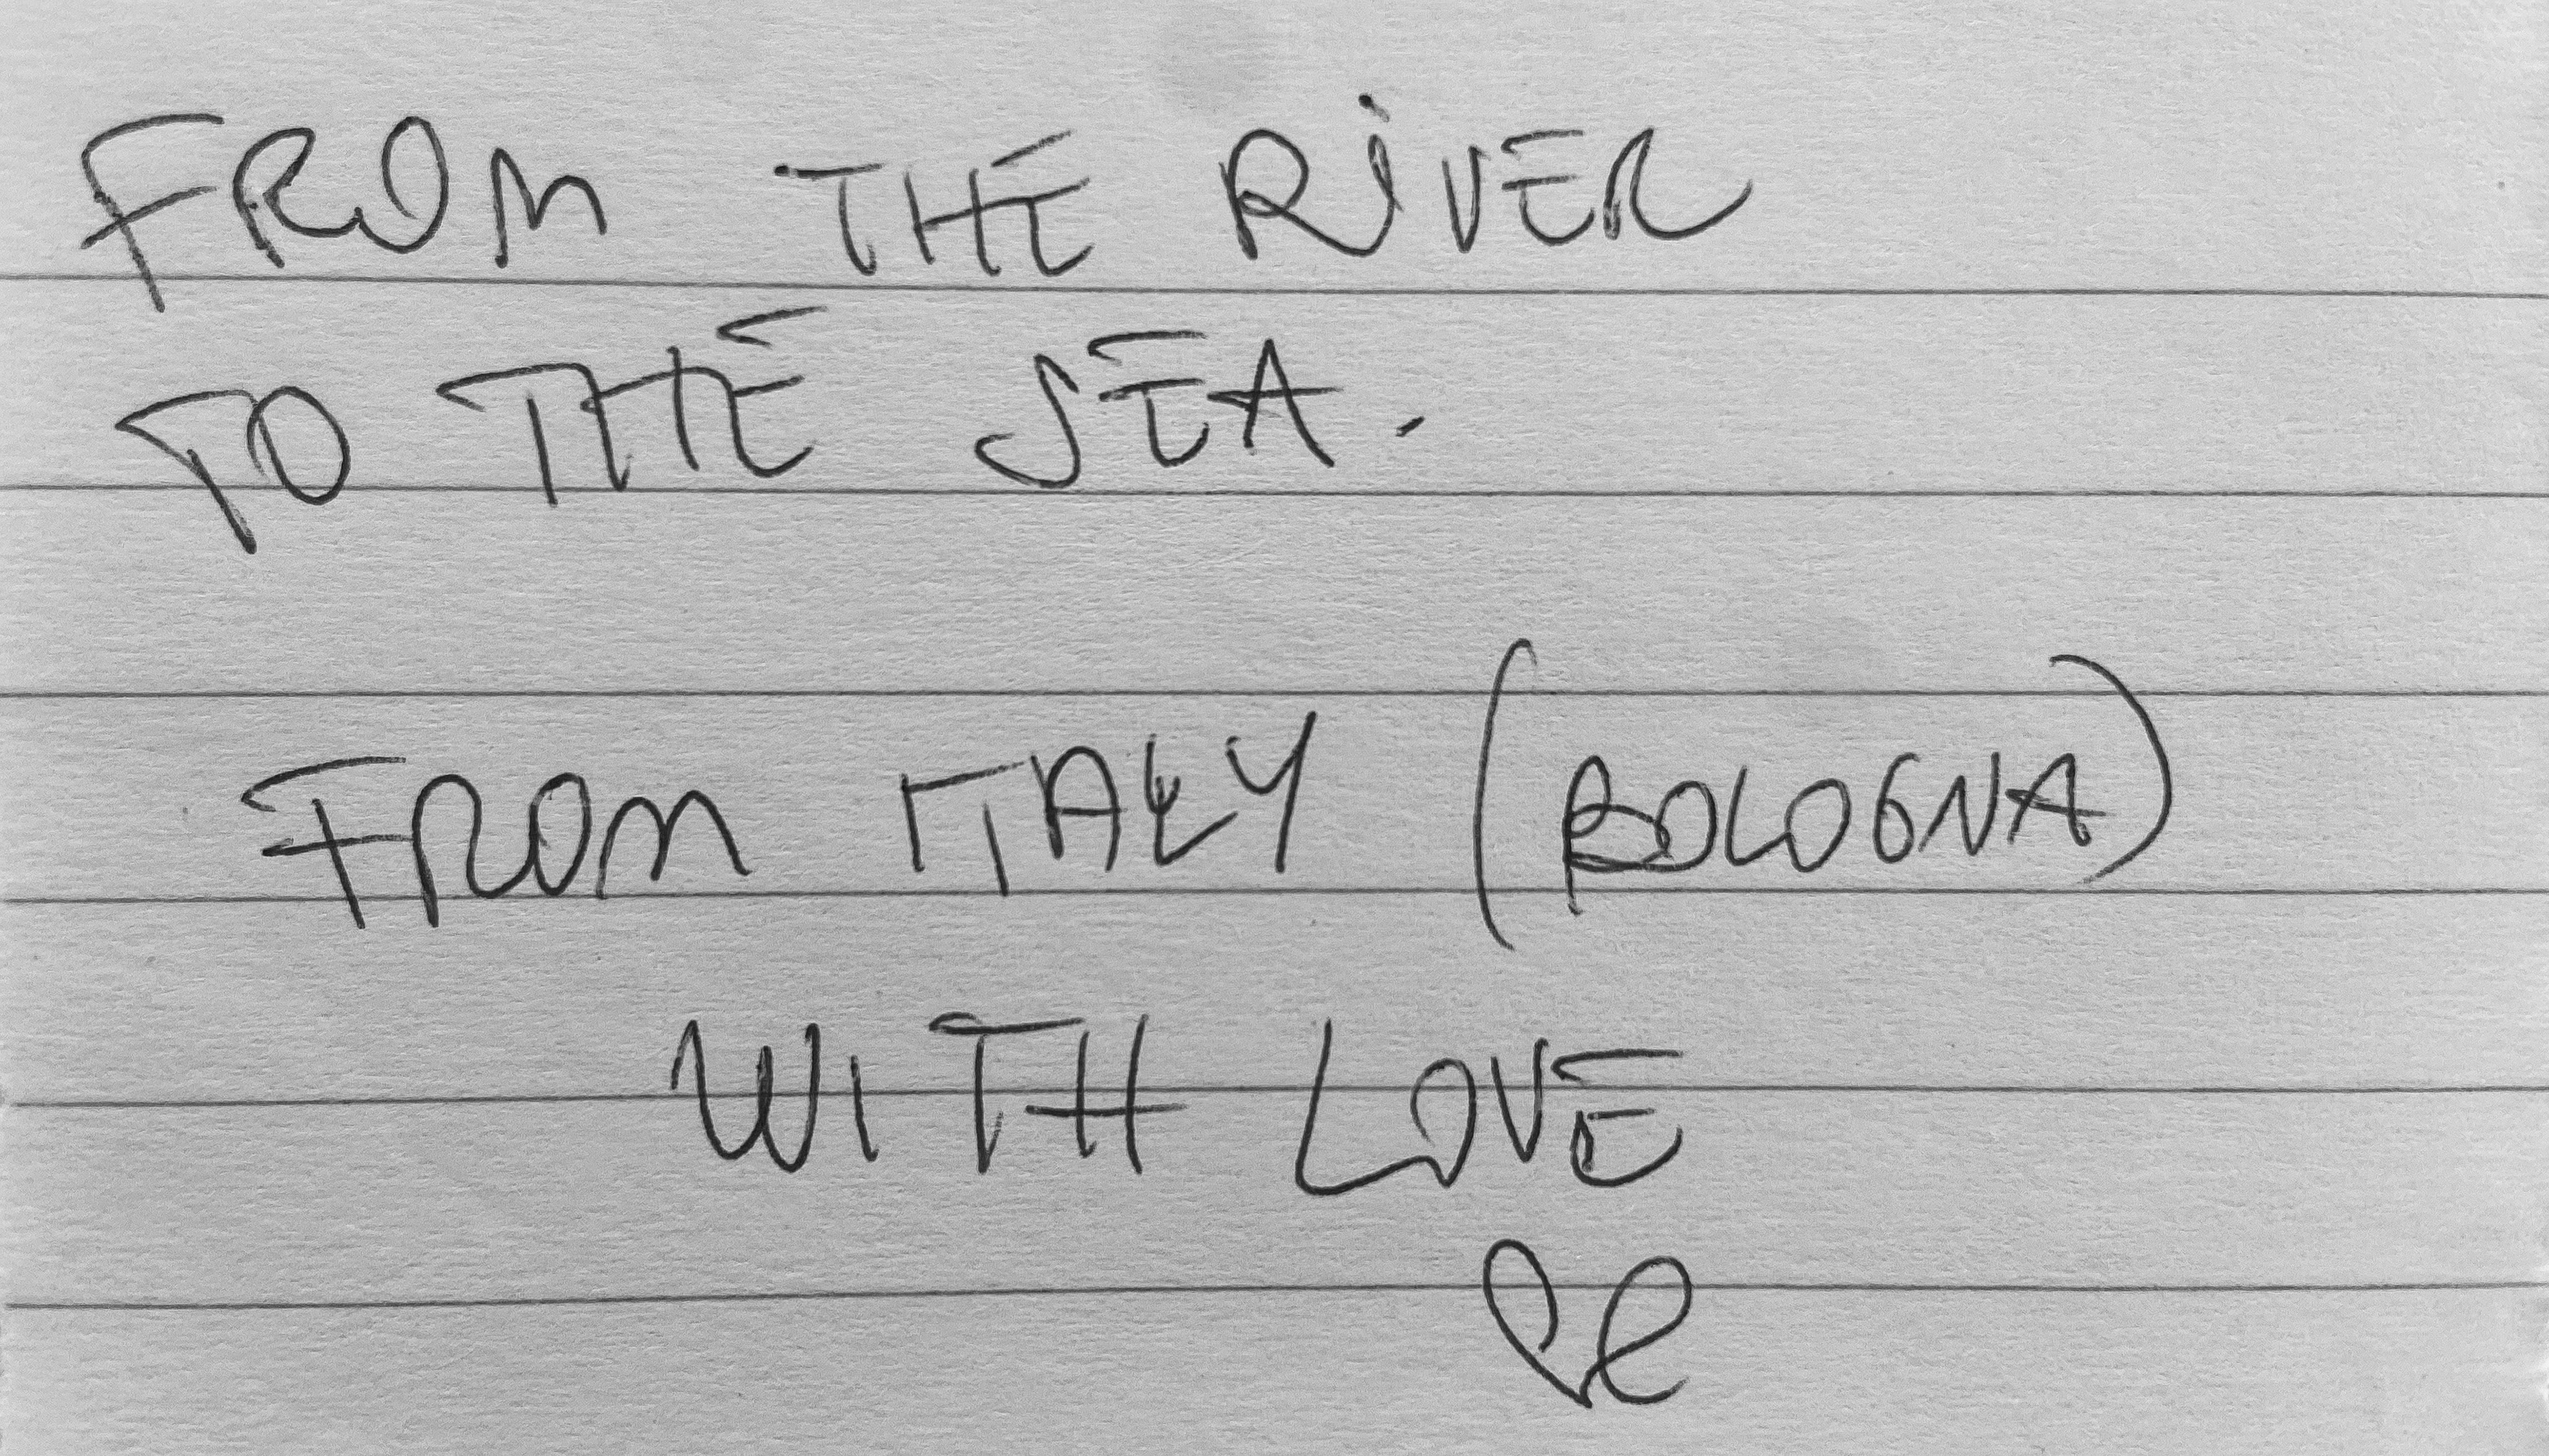 FROM THE RIVER
TO THE SEA.
FROM ITALY (BOLOGNA)
WITH LOVE